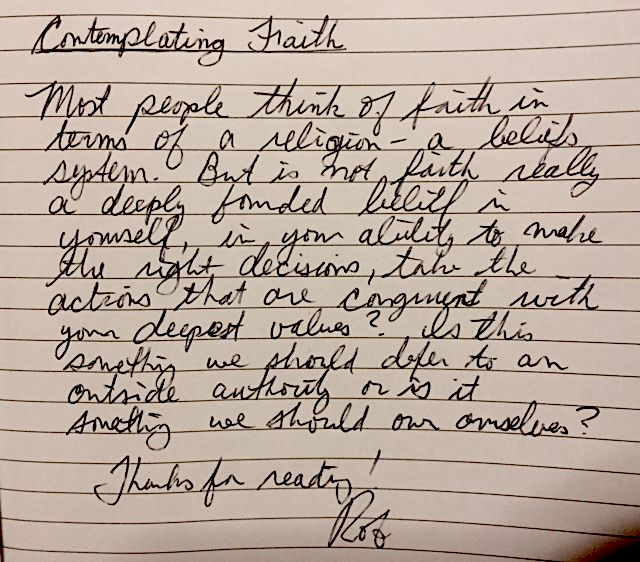 Contemplating Faith
Most people think of faith in
terms of a religion – a beliefs
system. But is not faith really
a deeply founded belief in
yourself, in your ability to make
the right decisions, take the
actions that are congruent with
your deepest values? Is this
something we should defer to an
outside authority or is it
something we should own ourselves?
Thanks for reading!
Rob